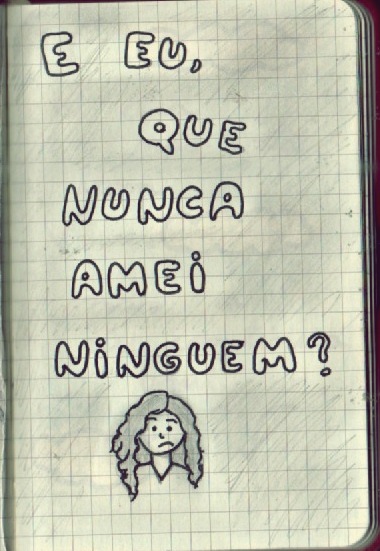 E EU,
QUE
NUNCA
AMEI
NINGUEM?